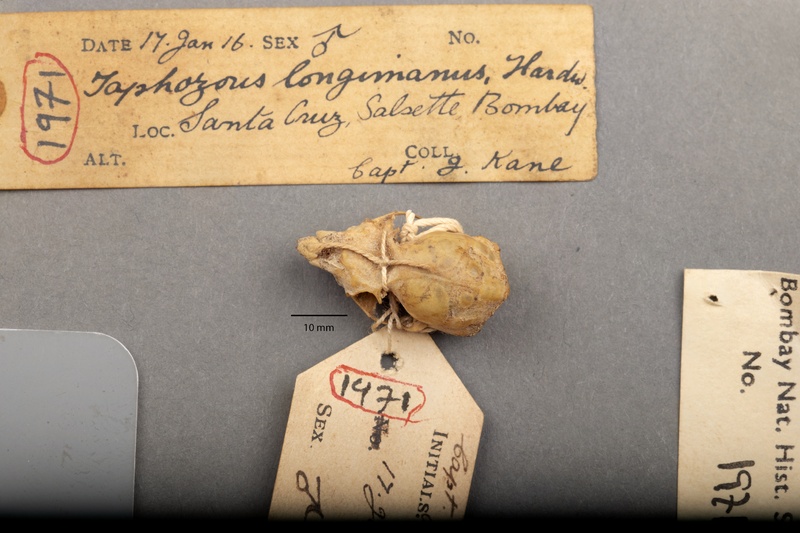 DATE 17. Jan 16. SEX ♂ No.
1971
Taphozous longimanus, Hardw.
Loc. Santa Cruz, Salsette Bombay
ALT. COLL.
Capt. J. Kane
10 mm
1971
No.
SEX.
17. J
INITIALS
Capt.
Bombay Nat. Hist. S
No.
197